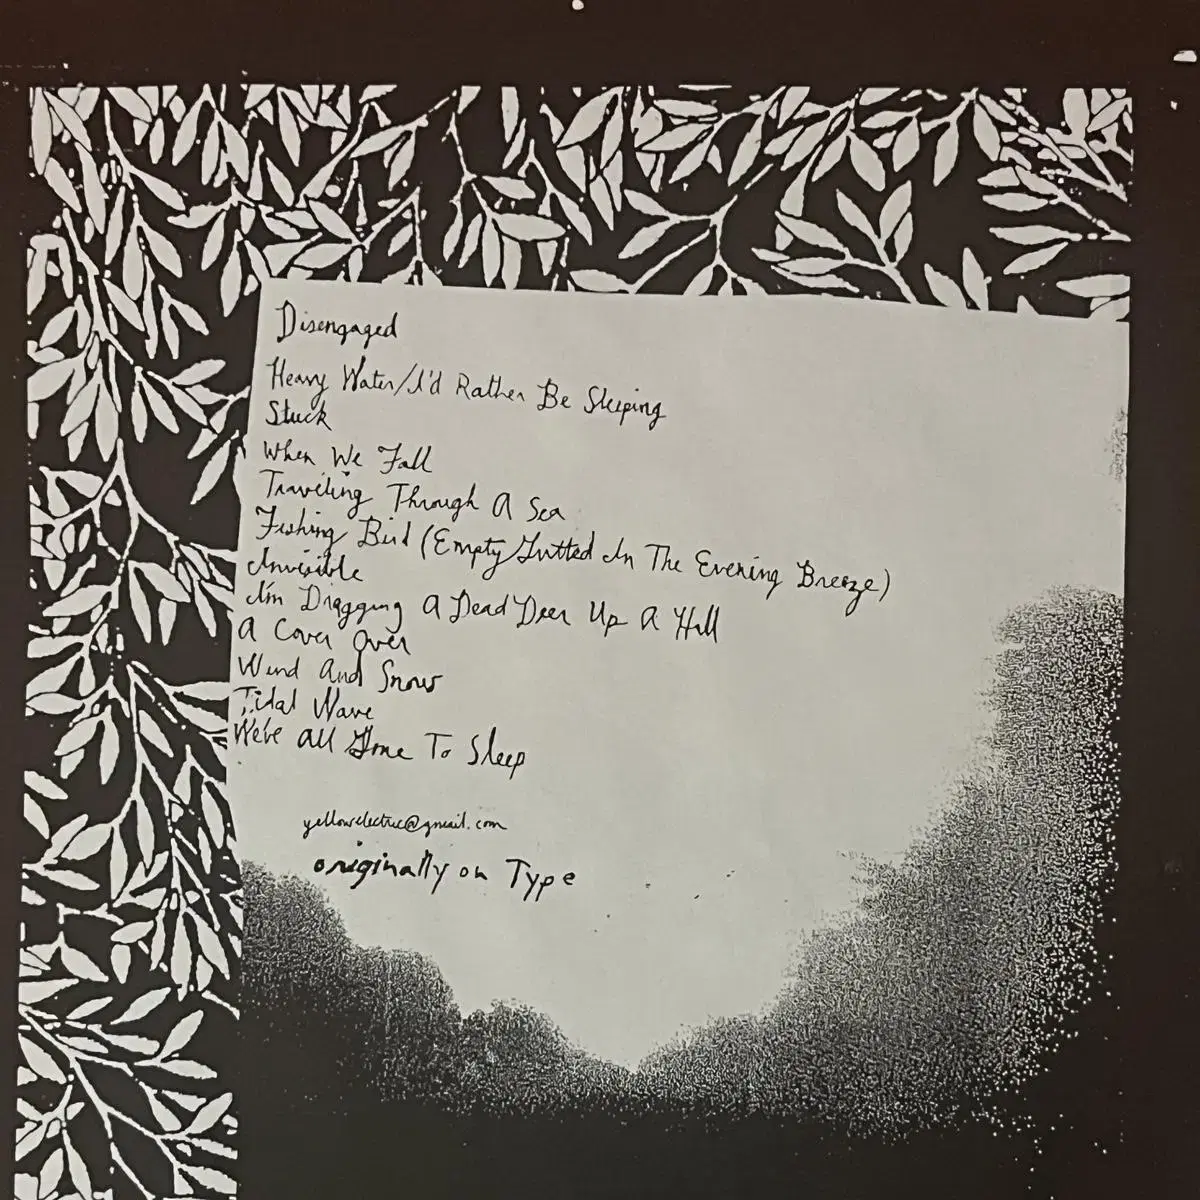 Disengaged
Heavy Water/I'd Rather Be Sleeping
Stuck
When We Fall
Traveling Through A Sea
Fishing Bird (Empty Gutted In The Evening Breeze)
Invisible
I'm Dragging A Dead Deer Up A Hill
A Cover Over
Wind And Snow
Tidal Wave
We've All Gone To Sleep
yellowelectric@gmail.com
originally on Type